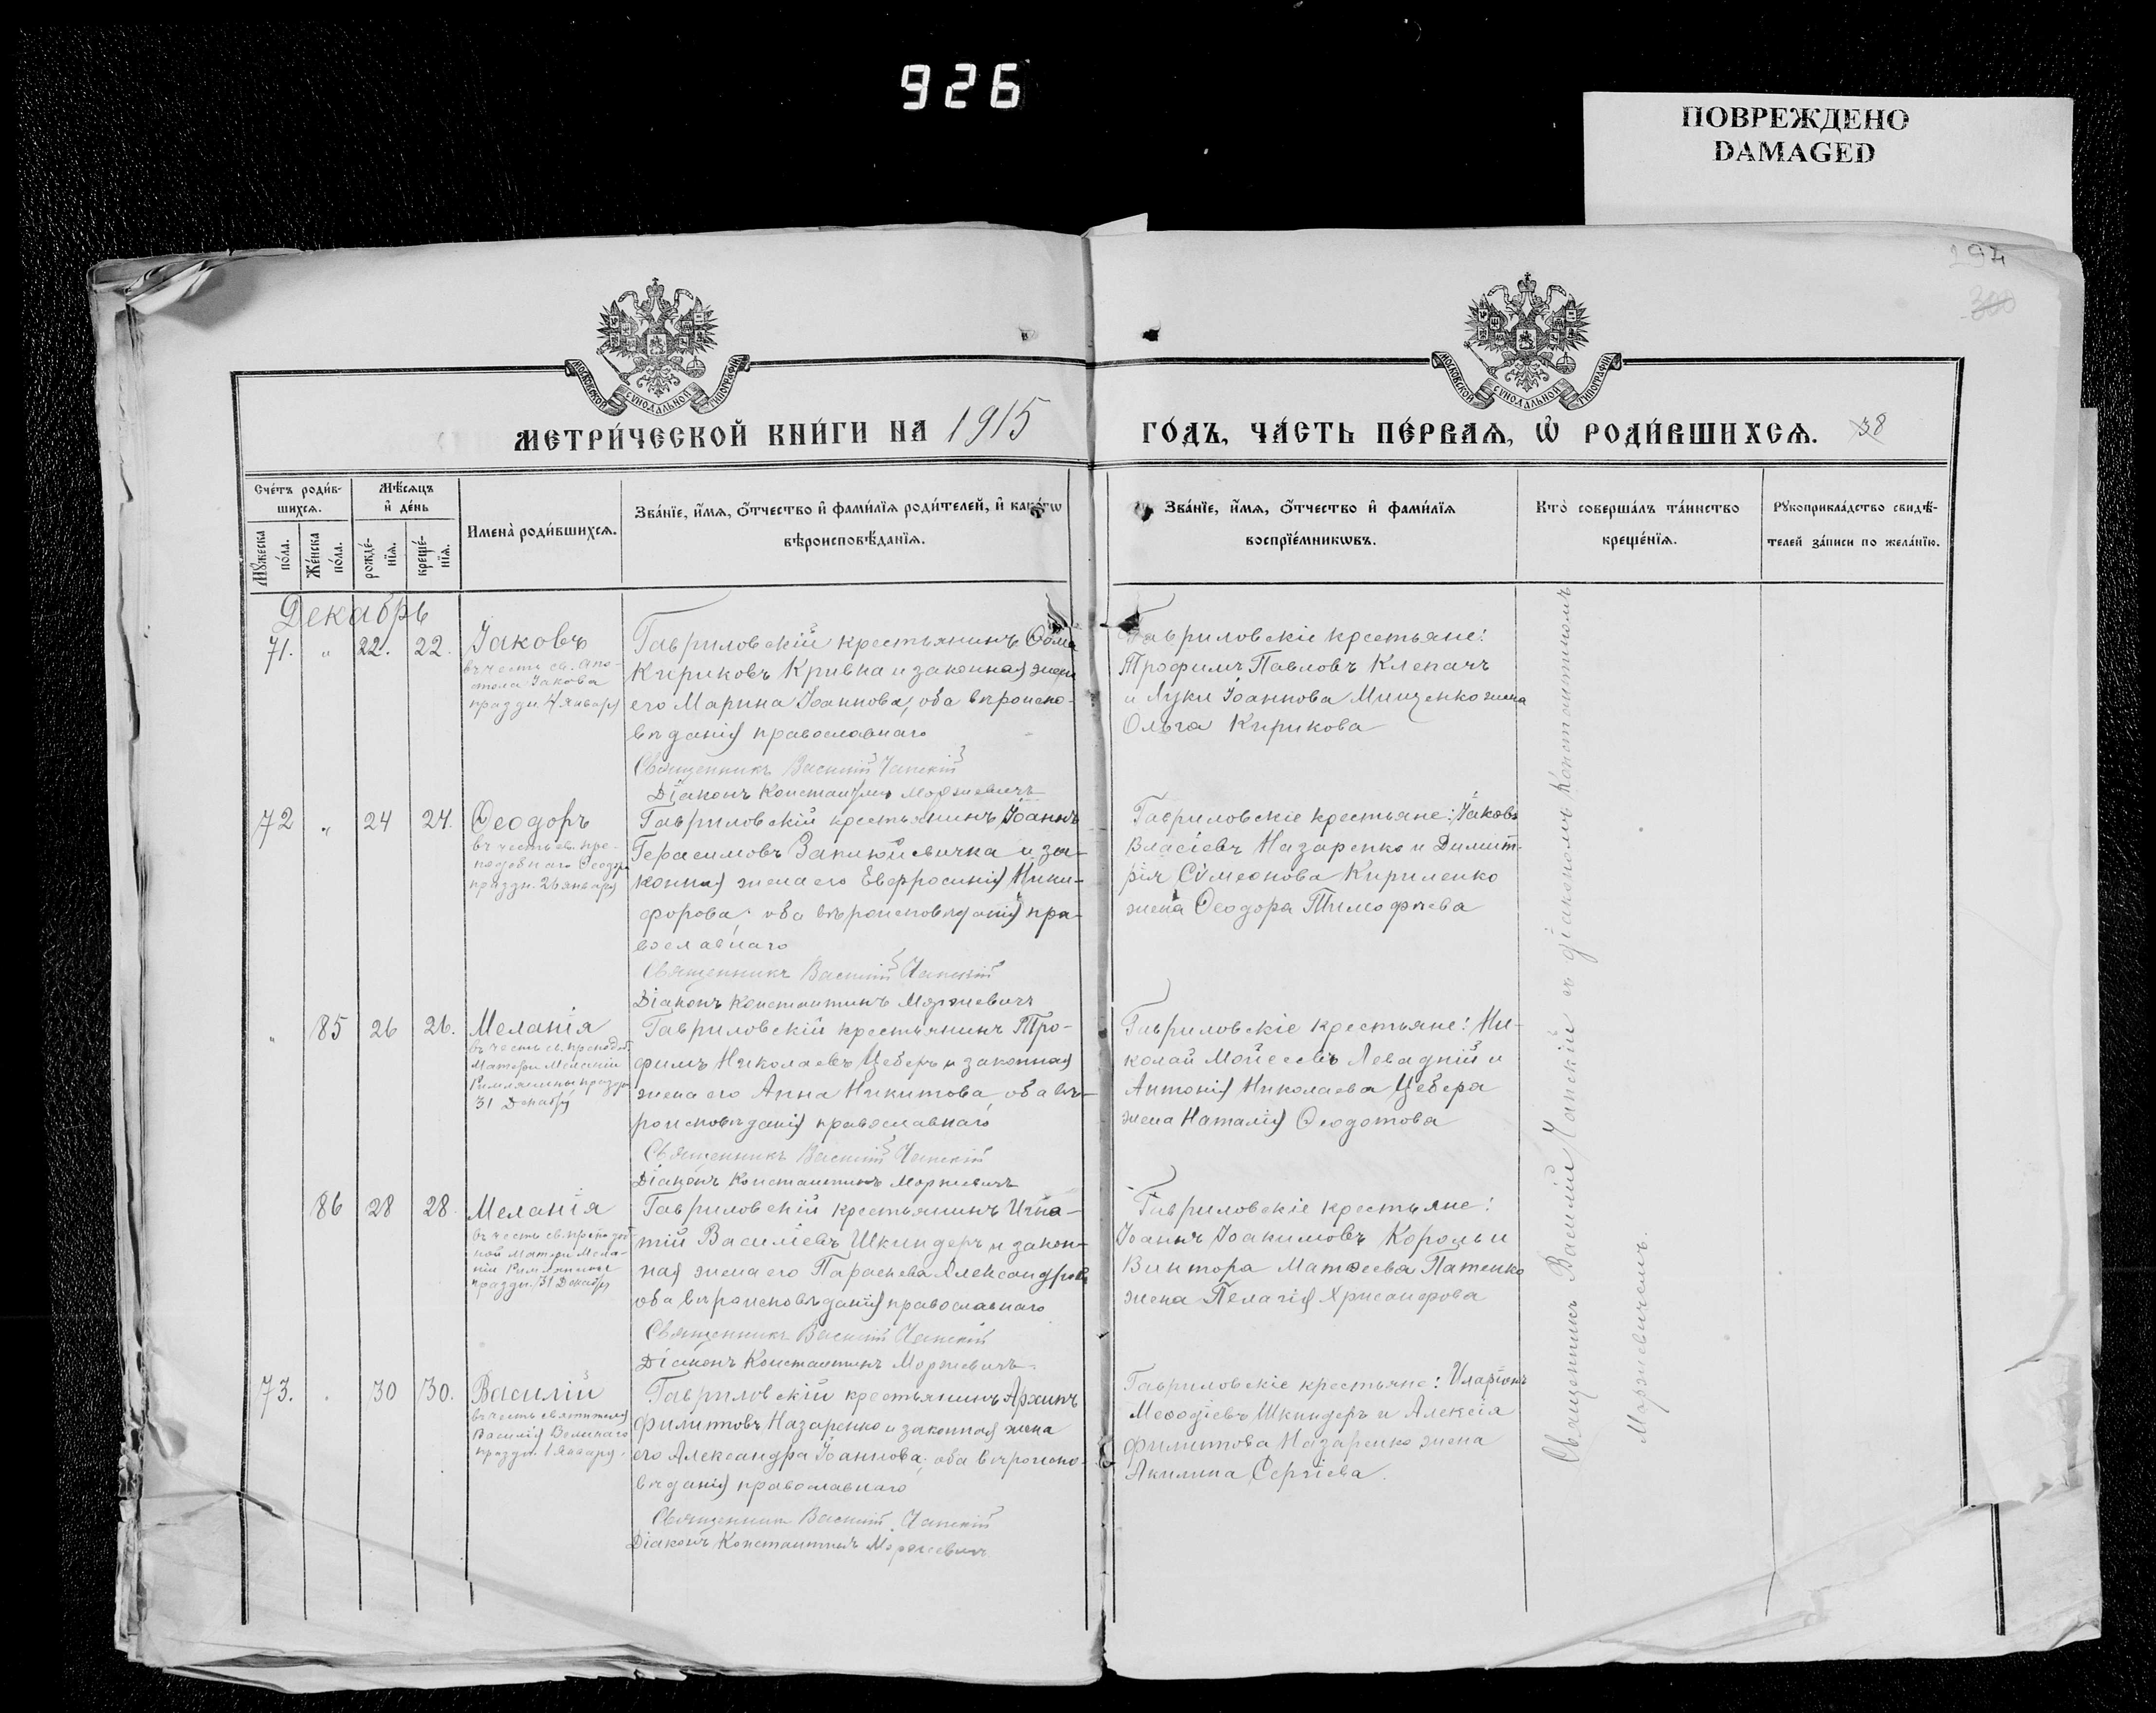 926
ПОВРЕЖДЕНО
DAMAGED
294
300
МОСКОВСКОЙ СУНОДАЛЬНОЙ ТИПОГРАФІИ
МОСКОВСКОЙ СУНОДАЛЬНОЙ ТИПОГРАФІИ
МЕТРИ́ЧЕСКОЙ КНИ́ГИ НА 1915
ГО́ДЪ, ЧА́СТЬ ПЕ́РВАѦ, Ѽ РОДИ́ВШИХСѦ. 38
Сче́тъ роди́в-
шихсѧ.
Мꙋ́жеска
по́ла.
Же́нска
по́ла.
Мѣ́сѧцъ
и҆ де́нь
рожде́-
нїѧ.
креще́-
нїѧ.
Имена̀ роди́вшихсѧ.
Зва́нїе, и҆́мѧ, ѻ҆́тчество и҆ фами́лїѧ роди́телей, и҆ како́гѡ
вѣроисповѣ́данїѧ.
Зва́нїе, и҆́мѧ, ѻ҆́тчество и҆ фами́лїѧ
воспрїе́мникѡвъ.
Кто̀ соверша́лъ та́инство
креще́нїѧ.
Рꙋкоприкла́дство свидѣ́-
телей за́писи по жела́нїю.
Декабрь
71. " 22. 22. Іаковъ
въ честь св. апо-
стола Іакова
праздн. 4 января
Гавриловскій крестьянинъ Ѳома
Кириковъ Кривка и законная жена
его Марина Іоаннова, оба вѣроиспо-
вѣданія православнаго
Священникъ Василій Чапскій
Діаконъ Константинъ Моржевичъ
Гавриловскіе крестьяне:
Трофимъ Павловъ Клепачъ
и Луки Іоаннова Мищенко жена
Ольга Кирикова
72 " 24 24. Ѳеодоръ
въ честь св. пре-
подобнаго Ѳеодора
праздн. 26 января
Гавриловскій крестьянинъ Іоаннъ
Герасимовъ и за-
конная жена его Евфросинія Ники-
форова; оба вѣроисповѣданія пра-
вославнаго
Священникъ Василій Чапскій
Діаконъ Константинъ Моржевичъ
Гавриловскіе крестьяне: Іаковъ
Власіевъ Назаренко и Димит-
рія Сѵмеонова Кириленко
жена Ѳеодора Тимофѣева
" 85 26 26. Меланія
въ честь св. преподоб.
Матери Меланіи
Римлянины праздн.
31 Декабря
Гавриловскій крестьянинъ Тро-
фимъ Николаевъ Цеберъ и законная
жена его Анна Никитова, оба вѣ-
роисповѣданія православнаго
Священникъ Василій Чапскій
Діаконъ Константинъ Моржевичъ
Гавриловскіе крестьяне: Ни-
колай Мойсеевъ Левадній и
Антонія Николаева Цебера
жена Наталія Ѳеодотова
86 28 28. Меланія
въ честь св. преподоб-
ной матери Мела-
ніи Римлянины
праздн. 31 Декабря
Гавриловскій крестьянинъ Игна-
тій Василіевъ Шкиндеръ и закон-
ная жена его Параскева Александрова
оба вѣроисповѣданія православнаго
Священникъ Василій Чапскій
Діаконъ Константинъ Моржевичъ
Гавриловскіе крестьяне:
Іоаннъ Іоакимовъ Король и
Виктора Матѳеева Патенко
жена Пелагія Хрисанфова
73. 30 30. Василій
въ честь святителя
Василія Великаго
праздн. 1 Января
Гавриловскій крестьянинъ Архипъ
Филиповъ Назаренко и законная жена
его Александра Іоаннова; оба вѣроиспо-
вѣданія православнаго
Священникъ Василій Чапскій
Діаконъ Константинъ Моржевичъ
Гавриловскіе крестьяне: Иларіонъ
Меѳодіевъ Шкиндеръ и Алексія
Филипова Назаренко жена
Акилина Сергіева.
Священникъ Василій Чапскій съ діакономъ Константиномъ
Моржевичемъ.